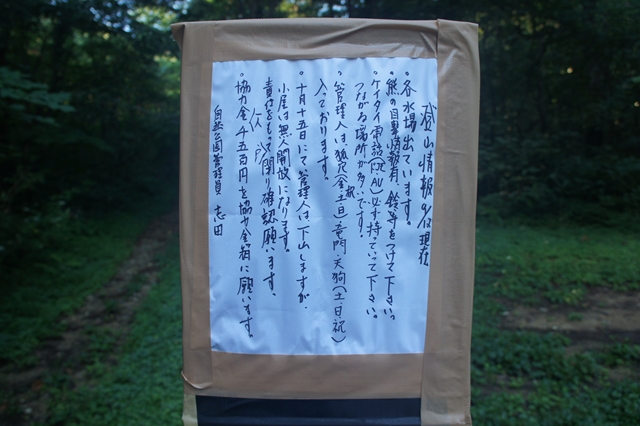 登山情報 9/12 現在
◦各水場出ています。
◦熊の目撃情報有、鈴等をつけて下さい。
◦ケイタイ電話(ドコモ、AU)必ず持っていって下さい。
つながる場所が多いです。
◦管理人は、狐穴(金土日)竜門・天狗(土・日・祝)
祝
入っております。
◦十月十五日にて管理人は下山しますが、
小屋は無人開放になります。
責任をもって閉り確認願います。
◦協力金千五百円を協力金箱に願います。
自然公園管理員 志田